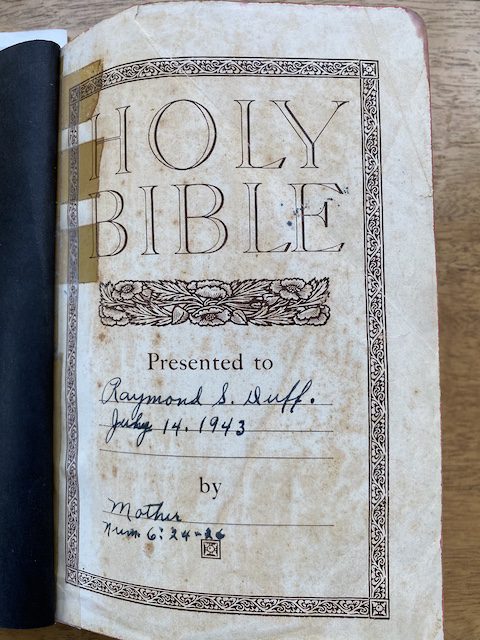 HOLY
BIBLE
Presented to
Raymond S. Duff.
July 14. 1943
by
Mother
Num. 6:24-26